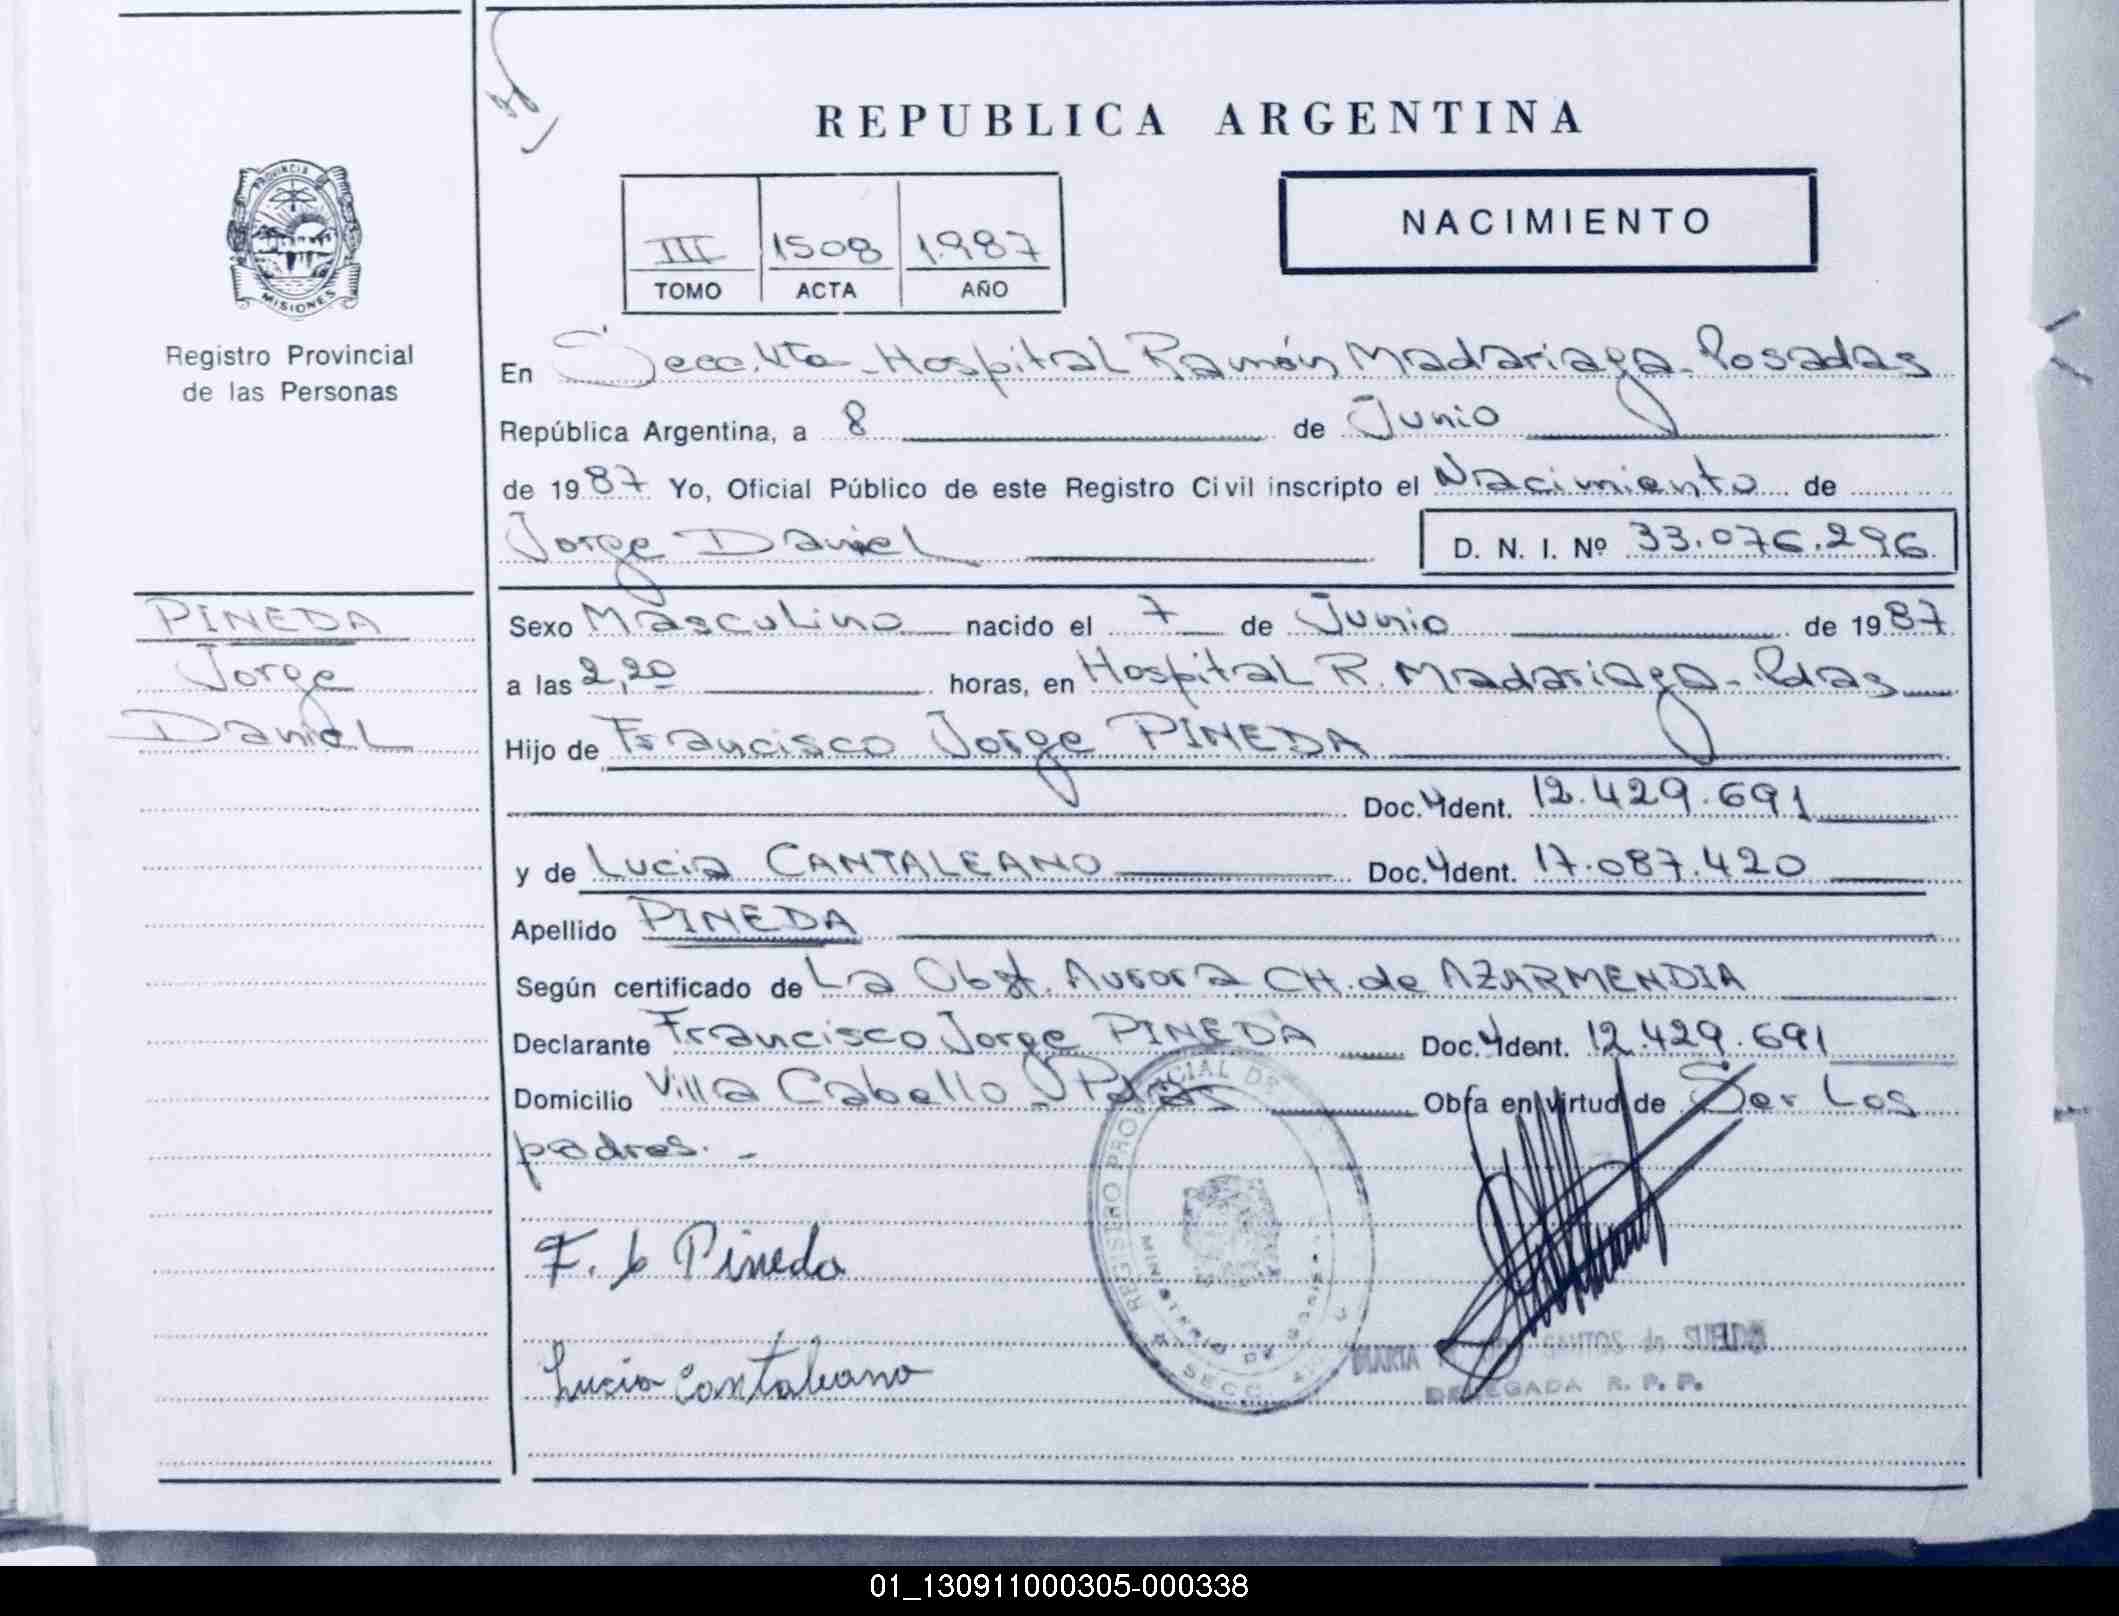 REPUBLICA ARGENTINA
PROVINCIA
MISIONES
Registro Provincial
de las Personas
NACIMIENTO
III 1508 1.987
TOMO ACTA AÑO
En Secc. 4ta - Hospital Ramón Madariaga - Posadas
República Argentina, a 8 de Junio
de 1987 Yo, Oficial Público de este Registro Civil inscripto el Nacimiento de
Jorge Daniel D. N. I. Nº 33.076.296
PINEDA
Jorge
Daniel
Sexo Masculino nacido el 7 de Junio de 1987
a las 2,20 horas, en Hospital R. Madariaga - Pdas
Hijo de Francisco Jorge PINEDA
Doc. Ident. 12.429.691
y de Lucia CANTALEANO Doc. Ident. 17.087.420
Apellido PINEDA
Según certificado de La Obst. Aurora CH. de AZARMENDIA
Declarante Francisco Jorge PINEDA Doc. Ident. 12.429.691
Domicilio Villa Cabello - Pdas Obra en virtud de Ser Los
padres. -
F. J Pineda
Lucia Cantaleano
REGISTRO PROVINCIAL DE
MINISTERIO DE
SECC. 4
MARTA SANTOS de SUELDO
DELEGADA R. P. P.
01_130911000305-000338